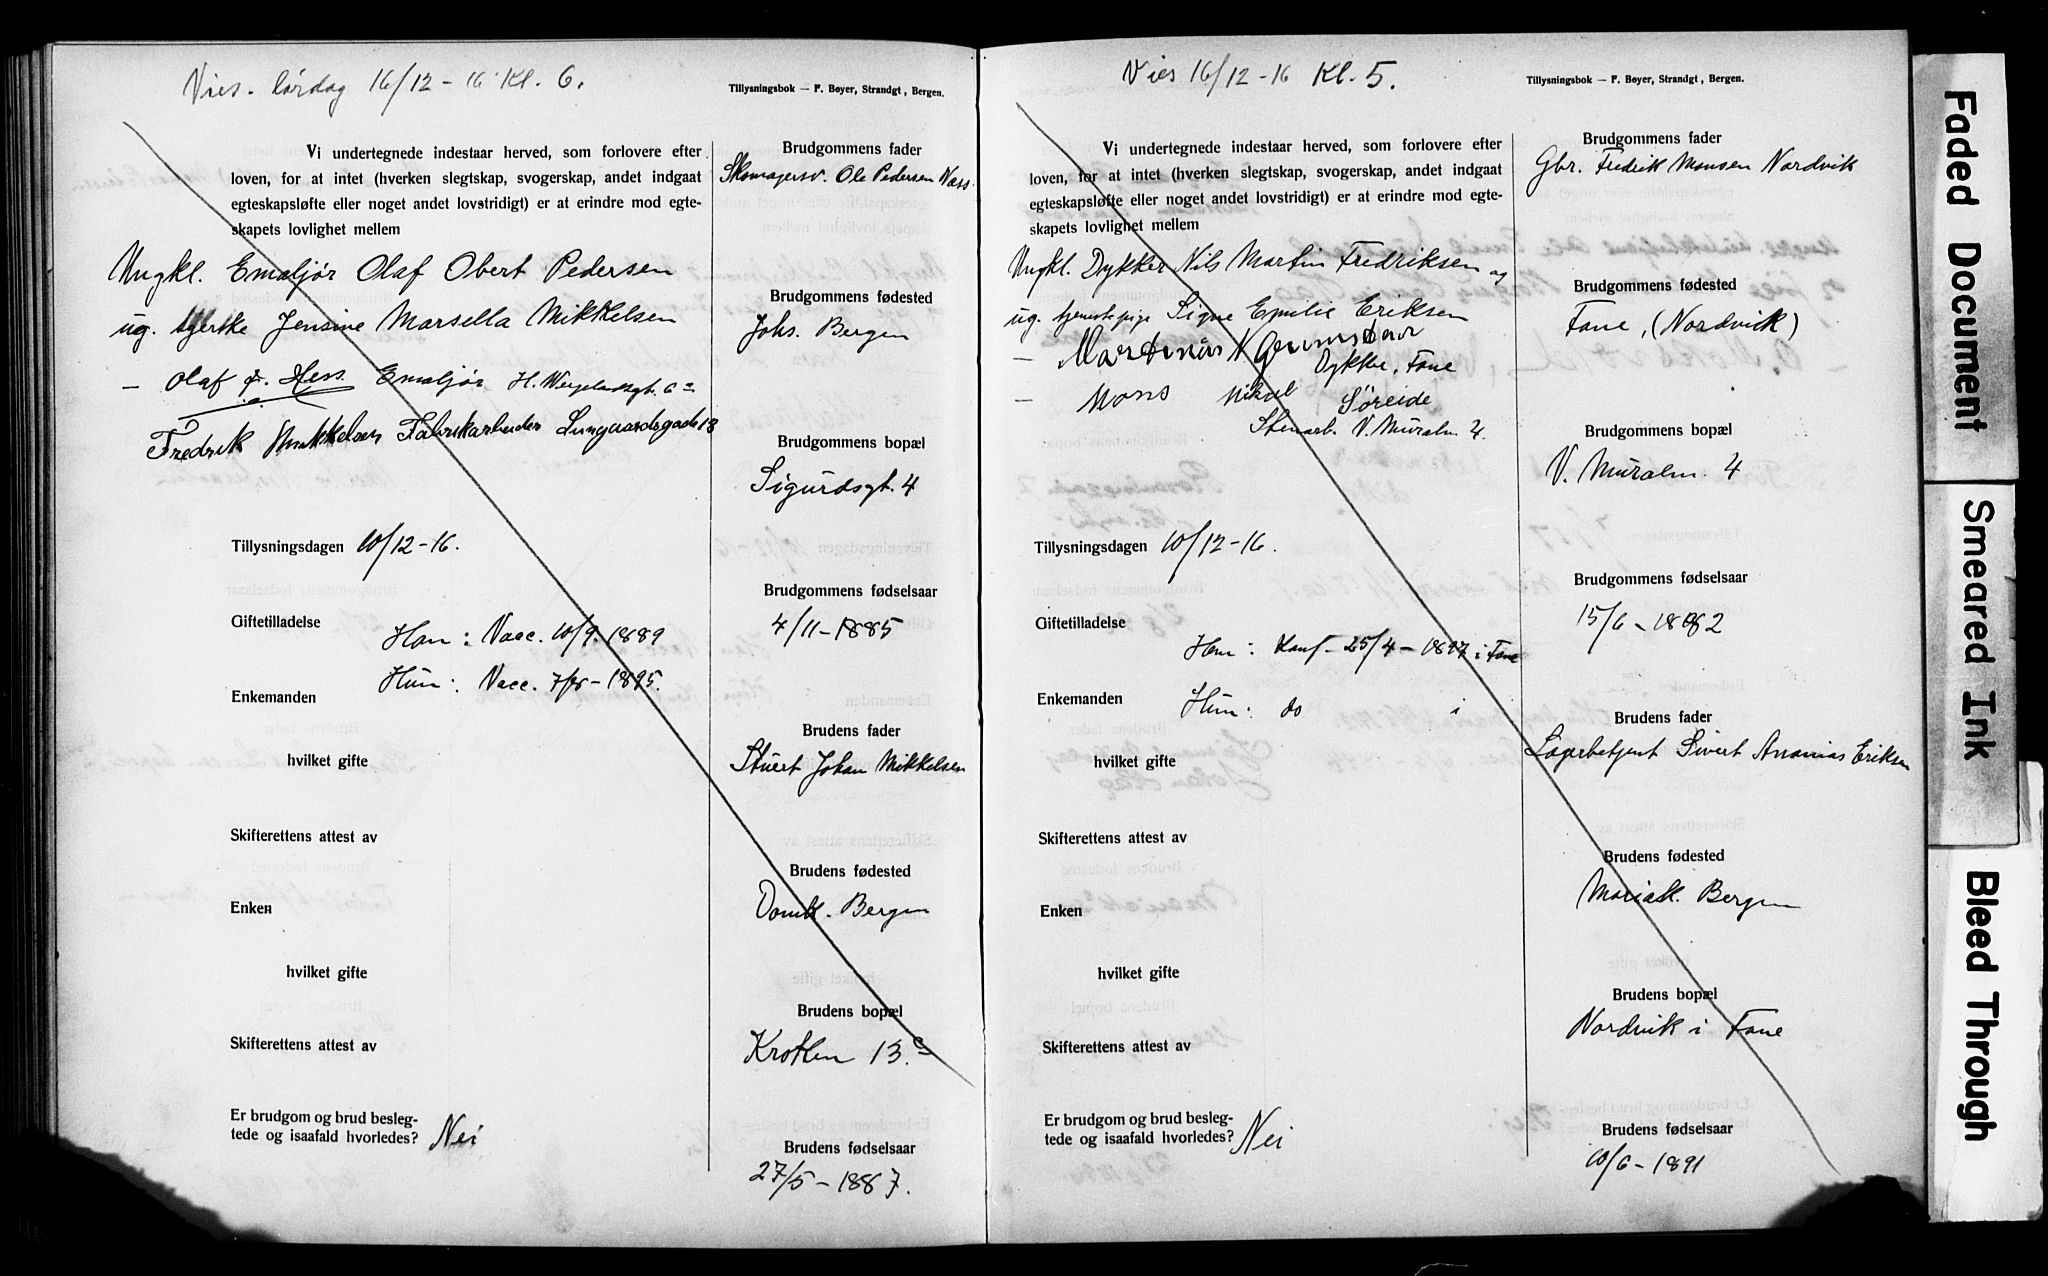 Vies. lördag 16/12 - 16 Kl. 6.
Tillysningsbok — F. Bøyer, Strandgt, Bergen.
Vi undertegnede indestaar herved, som forlovere efter
loven, for at intet (hverken slegtskap, svogerskap, andet indgaat
egteskapsløfte eller noget andet lovstridigt) er at erindre mod egte-
skapets lovlighet mellem
Ungkl. Emaljör Olaf Obert Pedersen
ug. syerske Jensine Marsella Mikkelsen
— Olaf Hess Emaljör H. Wergelandsgt. 6a
Fredrik Mikkelsen Fabrikarbeider Lungaardsgade 13
Tillysningsdagen 10/12-16.
Giftetilladelse
Han: Vacc. 10/9. 1889
Hun: Vacc. 1895.
Enkemanden
hvilket gifte
Skifterettens attest av
Enken
hvilket gifte
Skifterettens attest av
Er brudgom og brud besleg-
tede og isaafald hvorledes? Nei
Brudgommens fader
Skomagersv. Ole Pedersen Næss
Brudgommens fødested
Johs. Bergen
Brudgommens bopæl
Sigurdsgt. 4
Brudgommens fødselsaar
4/11-1885
Brudens fader
Stuert Johan Mikkelsen
Brudens fødested
Domk. Bergen
Brudens bopæl
Krohen 13c
Brudens fødselsaar
27/5-1887.
Vies 16/12-16 Kl. 5.
Tillysningsbok — F. Bøyer, Strandgt, Bergen.
Vi undertegnede indestaar herved, som forlovere efter
loven, for at intet (hverken slegtskap, svogerskap, andet indgaat
egteskapsløfte eller noget andet lovstridigt) er at erindre mod egte-
skapets lovlighet mellem
Ungkl. Dykker Nils Martin Fredriksen og
ug. tjenestepige Signe Emilie Eriksen
— Martinus N
Dykker, Fane
— Mons Nikal Søreide
Stenarb. V. Muralm. 4.
Tillysningsdagen 10/12-16.
Giftetilladelse
Han: Konf. 25/4-1897 i Fane
Enkemanden
Hun: do i
hvilket gifte
Skifterettens attest av
Enken
hvilket gifte
Skifterettens attest av
Er brudgom og brud besleg-
tede og isaafald hvorledes? Nei
Brudgommens fader
Gbr. Fredrik Monsen Nordvik
Brudgommens fødested
Fane, (Nordvik)
Brudgommens bopæl
V. Muralm. 4
Brudgommens fødselsaar
15/6-1882
Brudens fader
Lagerbetjent Sivert Ananias Eriksen
Brudens fødested
Mariak. Bergen
Brudens bopæl
Nordvik i Fane
Brudens fødselsaar
10/6-1891
Faded Document
Smeared Ink
Bleed Through